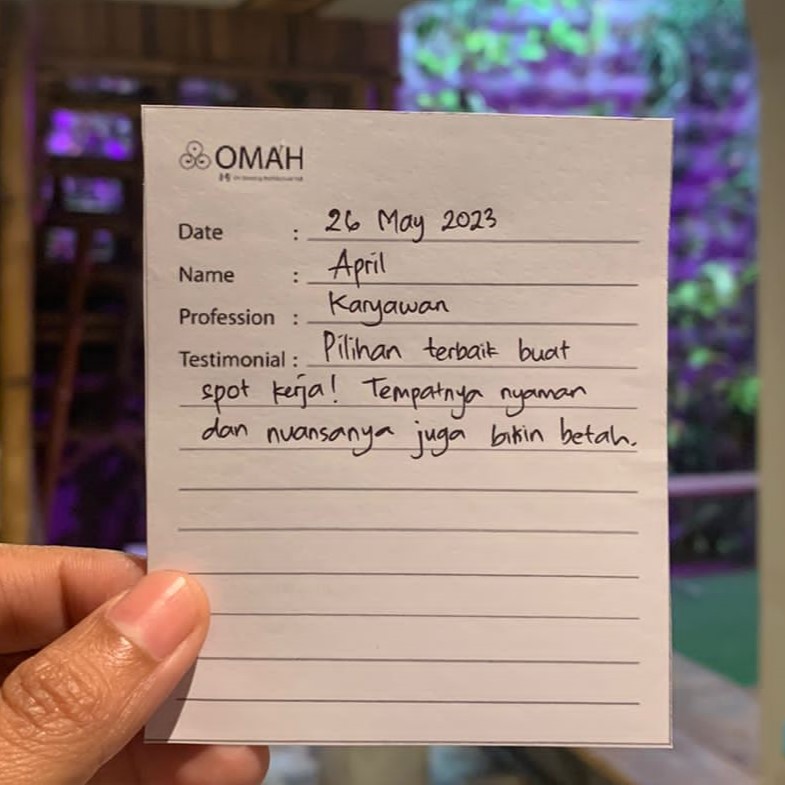 OMAH
Date : 26 May 2023
Name : April
Profession : Karyawan
Testimonial : Pilihan terbaik buat
spot kerja! Tempatnya nyaman
dan nuansanya juga bikin betah.